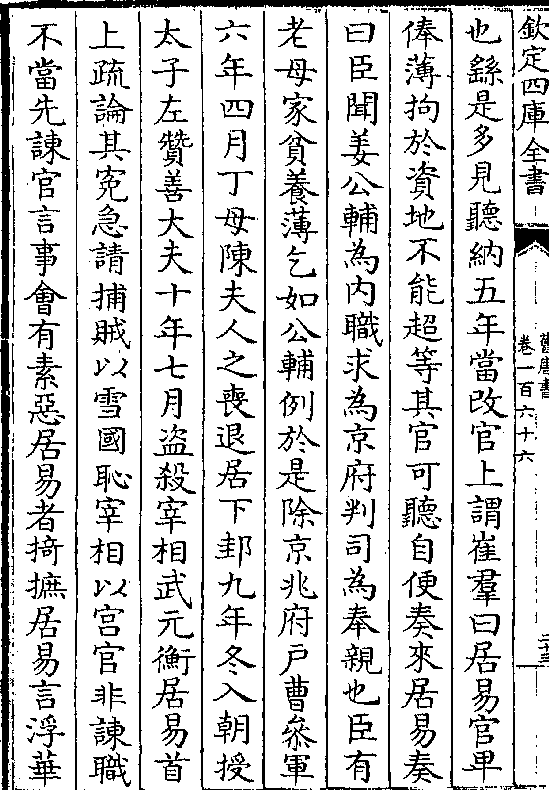 欽定四庫全書
舊唐書
卷一百六十六
也繇是多見聽納五年當改官上謂崔羣曰居易官卑
俸薄拘於資地不能超等其官可聽自便奏來居易奏
曰臣聞姜公輔為内職求為京府判司為奉親也臣有
老母家貧養薄乞如公輔例於是除京兆府户曹叅軍
六年四月丁母陳夫人之喪退居下邽九年冬入朝授
太子左贊善大夫十年七月盗殺宰相武元衡居易首
上疏論其寃急請捕賊以雪國恥宰相以宫官非諫職
不當先諫官言事會有素惡居易者掎摭居易言浮華